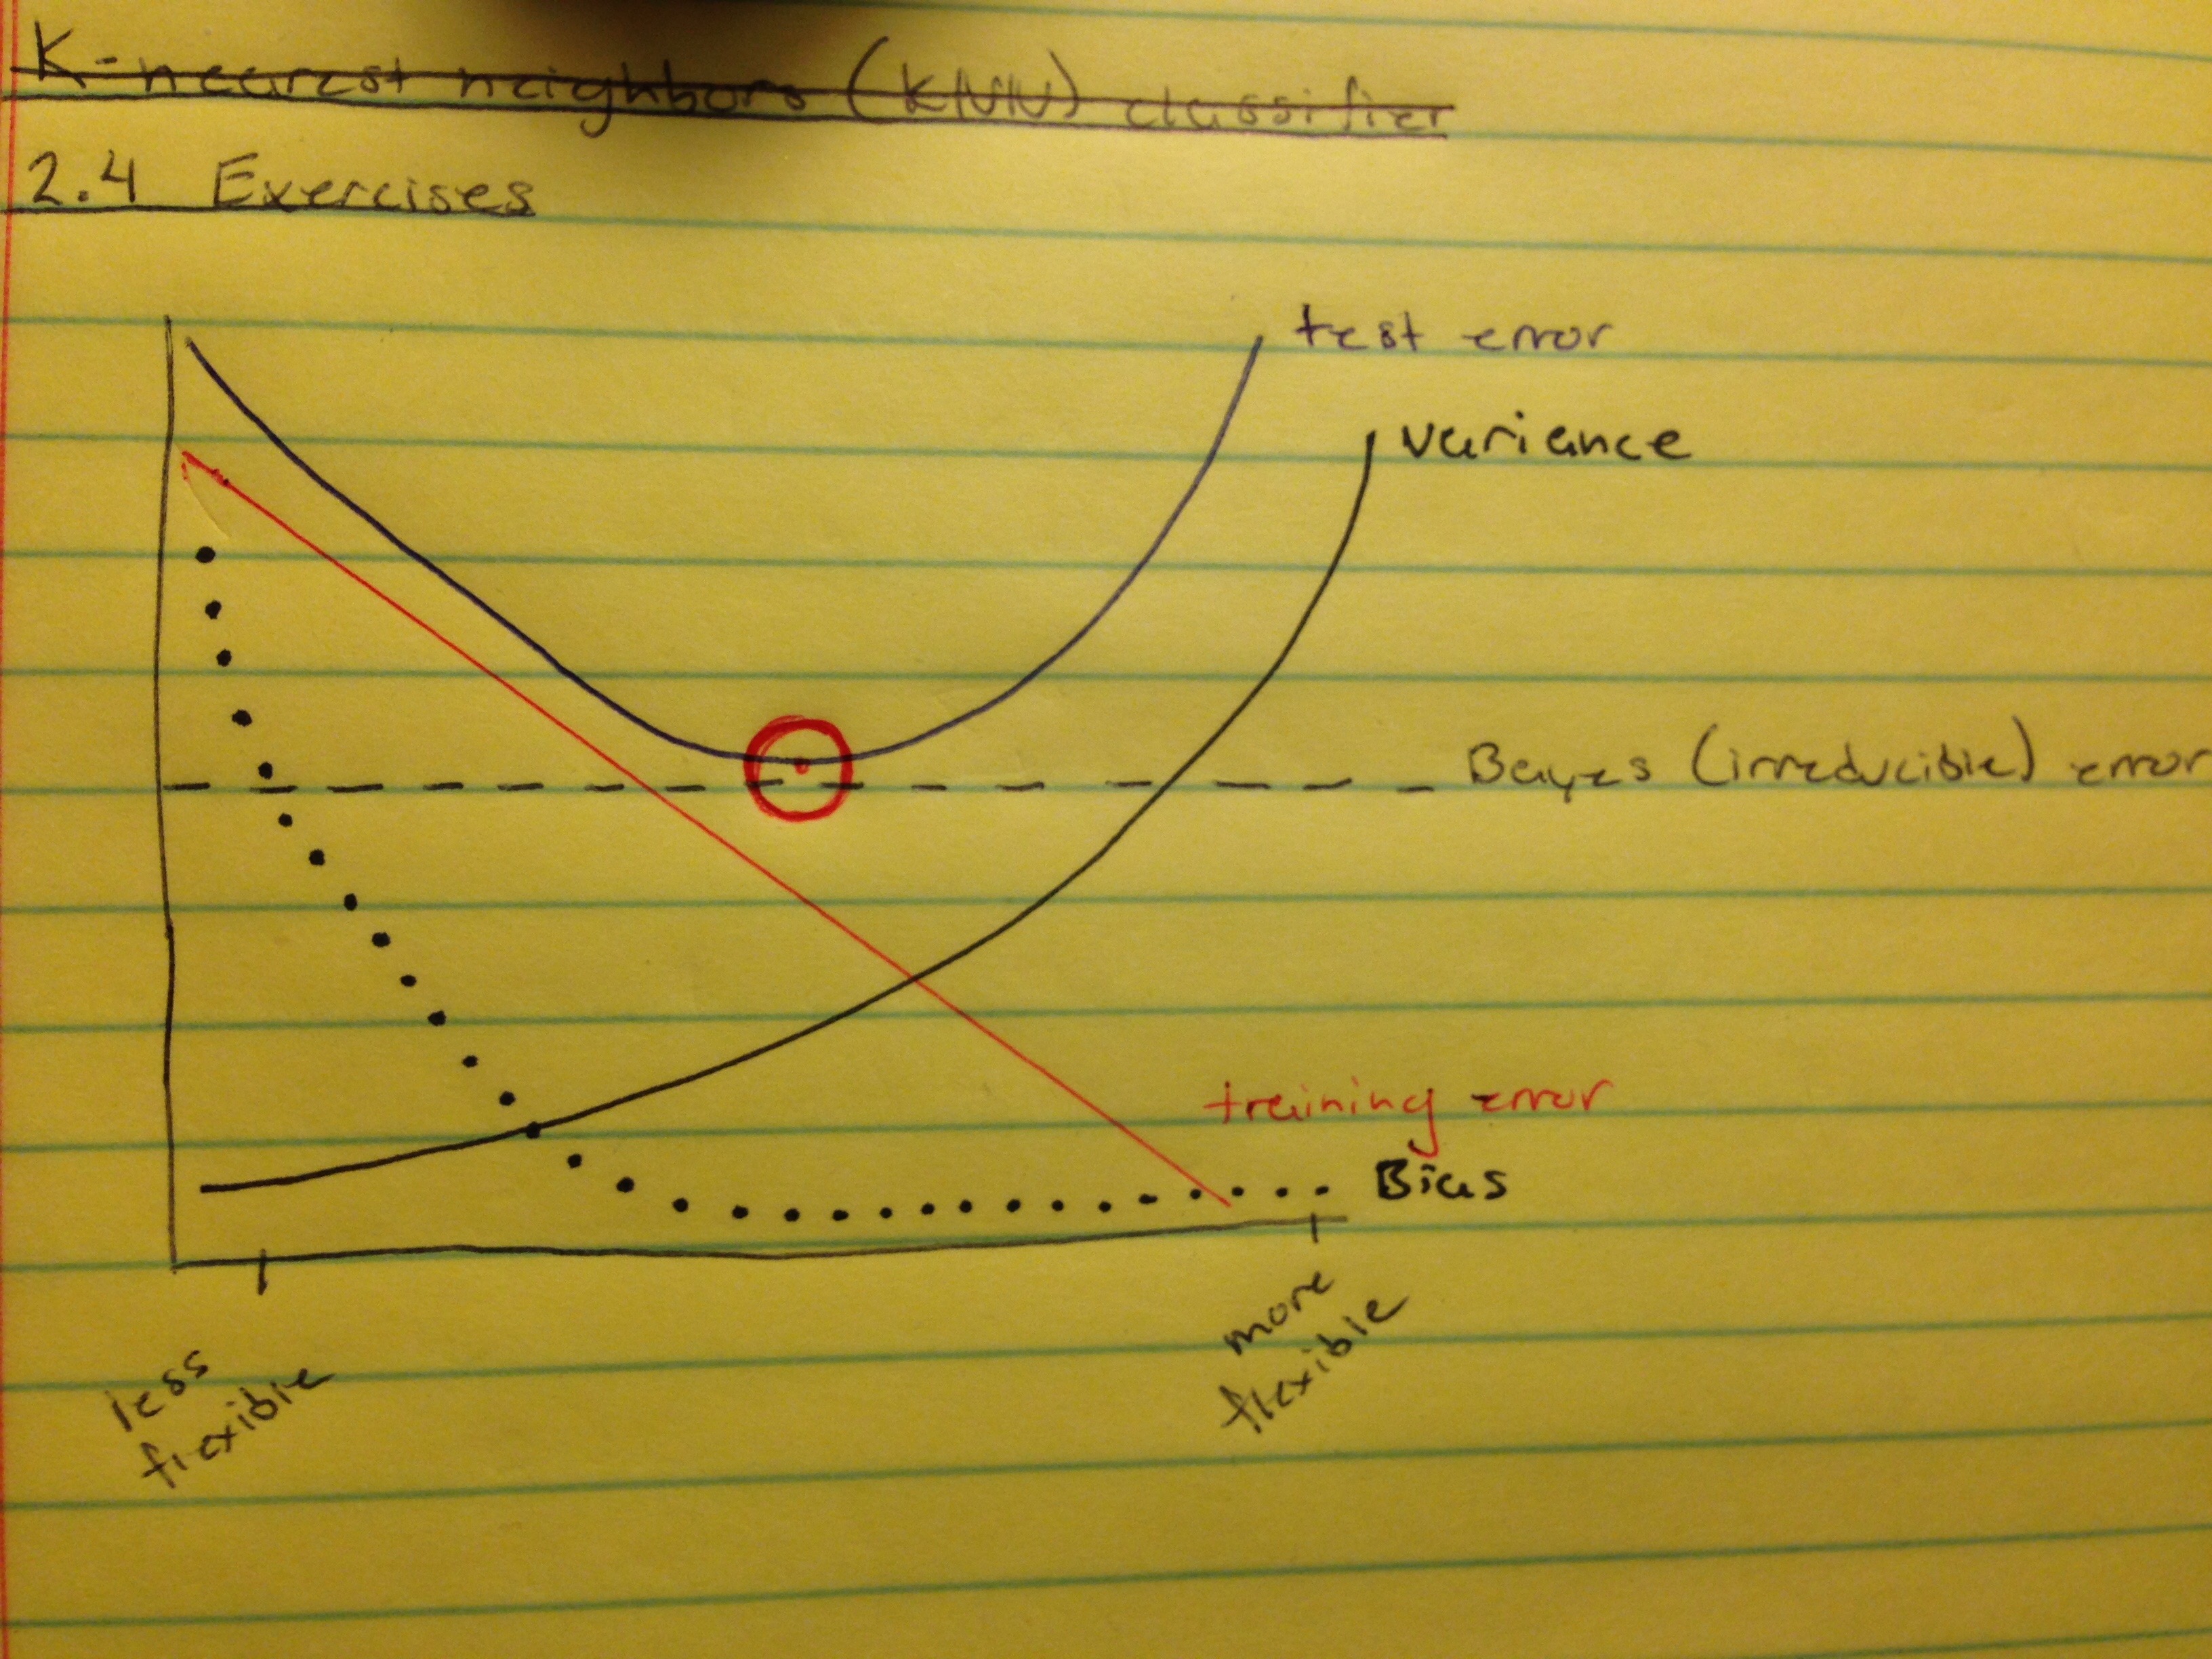 K-nearest neighbors (KNN) classifier
2.4 Exercises
test error
variance
Bayes (irreducible) error
training error
Bias
less
flexible
more
flexible